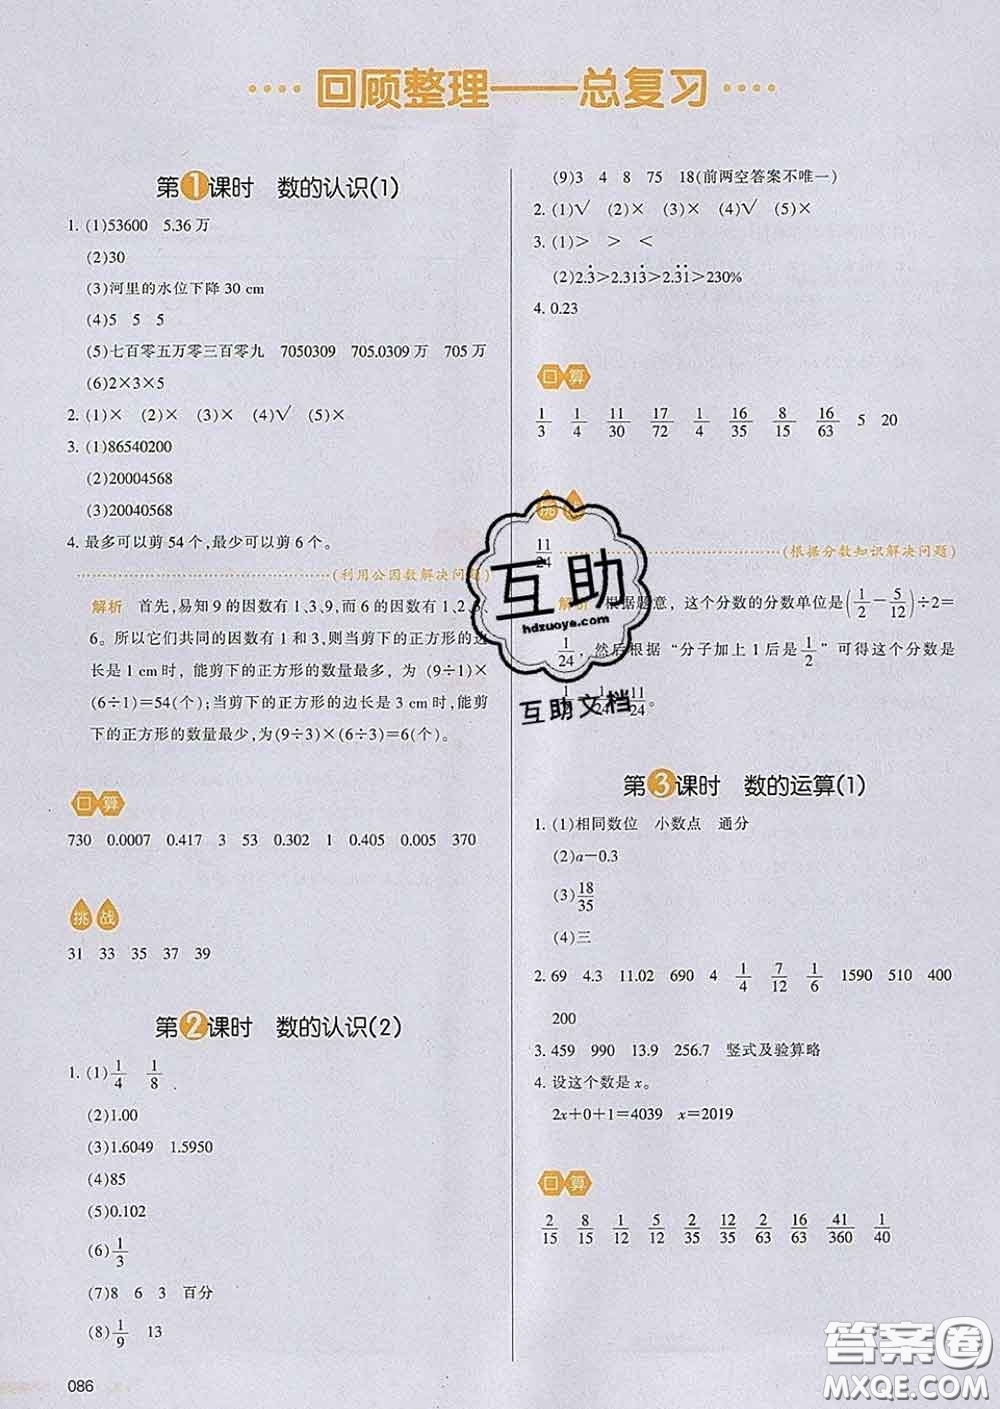 回顾整理——总复习
第1课时 数的认识(1)
1. (1)53600 5.36万
(2)30
(3)河里的水位下降30 cm
(4)5 5 5
(5)七百零五万零三百零九 7050309 705.0309万 705万
(6)2×3×5
2. (1)× (2)× (3)× (4)√ (5)×
3. (1)86540200
(2)20004568
(3)20040568
4. 最多可以剪54个,最少可以剪6个。
(利用公因数解决问题)
解析 首先,易知9的因数有1、3、9,而6的因数有1、2、3、
6。所以它们共同的因数有1和3,则当剪下的正方形的边
长是1 cm时，能剪下的正方形的数量最多，为 (9÷1)×
(6÷1)=54(个);当剪下的正方形的边长是3 cm时,能剪
下的正方形的数量最少,为(9÷3)×(6÷3)=6(个)。
口算
730 0.0007 0.417 3 53 0.302 1 0.405 0.005 370
挑战
31 33 35 37 39
第2课时 数的认识(2)
1. (1)1/4 1/8
(2)1.00
(3)1.6049 1.5950
(4)85
(5)0.102
(6)1/3
(7)8 6 3 百分
(8)1/9 13
086
(9)3 4 8 75 18(前两空答案不唯一)
2. (1)√ (2)× (3)× (4)√ (5)×
3. (1)> > <
(2)2.3̇>2.313̇>2.3̇1̇>230%
4. 0.23
口算
1/3 1/4 11/30 17/72 1/4 16/35 8/15 16/63 5 20
挑战
11/24
(根据分数知识解决问题)
解析 根据题意，这个分数的分数单位是(1/2−5/12)÷2=
1/24，然后根据“分子加上1后是1/2”可得这个分数是
1/2−1/24=11/24。
第3课时 数的运算(1)
1. (1)相同数位 小数点 通分
(2)a−0.3
(3)18/35
(4)三
2. 69 4.3 11.02 690 4 1/4 7/12 1/6 1590 510 400
200
3. 459 990 13.9 256.7 竖式及验算略
4. 设这个数是x。
2x+0+1=4039 x=2019
口算
2/15 8/15 1/12 5/12 2/35 12/35 2/63 16/63 41/360 1/40
互助
hdzuoye.com
互助文档
答案圈
MXQE.COM